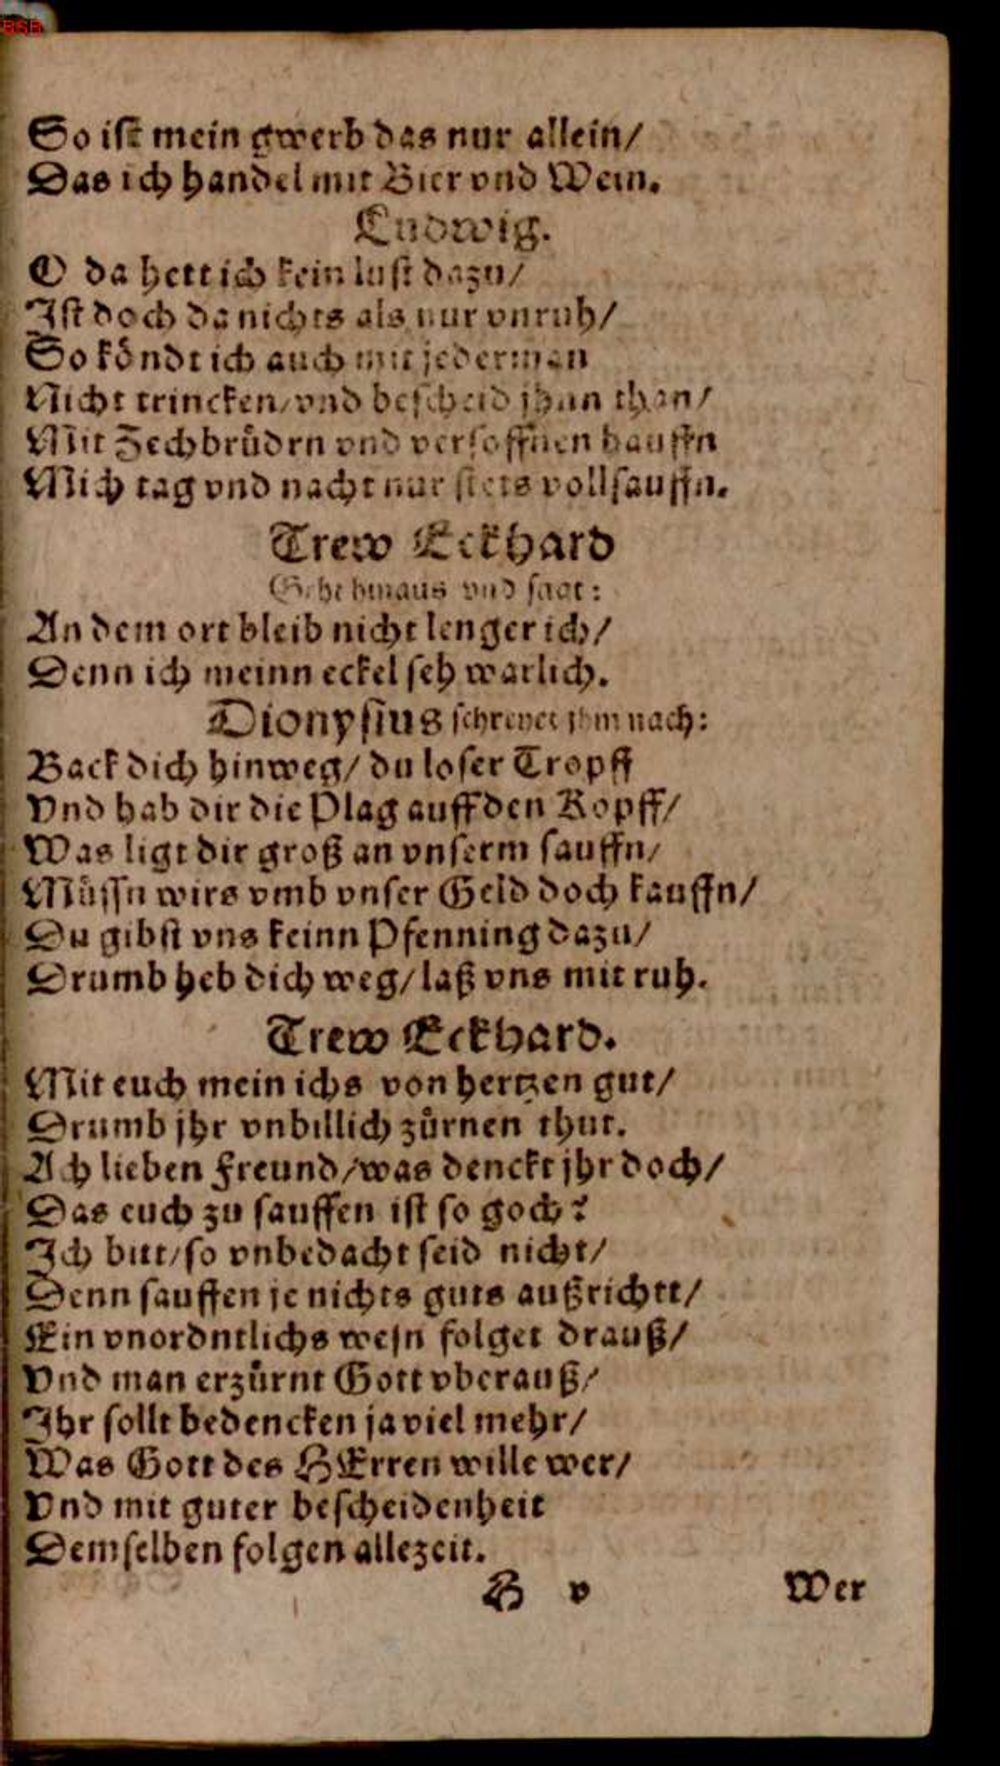 BSB
So ist mein gwerb das nur allein/
Das ich handel mit Bier vnd Wein.
Ludwig.
O da hett ich kein lust dazu/
Ist doch da nichts als nur vnruh/
So koͤndt ich auch mit jederman
Nicht trincken/ vnd bescheid jhnn than/
Mit Zechbruͤdrn vnd versoffnen hauffn
Mich tag vnd nacht nur stets vollsauffn.
Trew Eckhard
Gehe hinaus vnd sagt:
An dem ort bleib nicht lenger ich/
Denn ich meinn eckel seh warlich.
Dionysius schreyet jhm nach:
Back dich hinweg/ du loser Tropff
Vnd hab dir die Plag auff den Kopff/
Was ligt dir groß an vnserm sauffn/
Muͤssn wirs vmb vnser Geld doch kauffn/
Du gibst vns keinn Pfenning dazu/
Drumb heb dich weg/ laß vns mit ruh.
Trew Eckhard.
Mit euch mein ichs von hertzen gut/
Drumb jhr vnbillich zuͤrnen thut.
Ach lieben Freund/ was denckt jhr doch/
Das euch zu sauffen ist so goch?
Ich bitt/ so vnbedacht seid nicht/
Denn sauffen je nichts guts außrichtt/
Ein vnordntlichs wesn folget drauß/
Vnd man erzuͤrnt Gott vberauß/
Ihr sollt bedencken ja viel mehr/
Was Gott des HErren wille wer/
Vnd mit guter bescheidenheit
Demselben folgen allezeit.
B v Wer